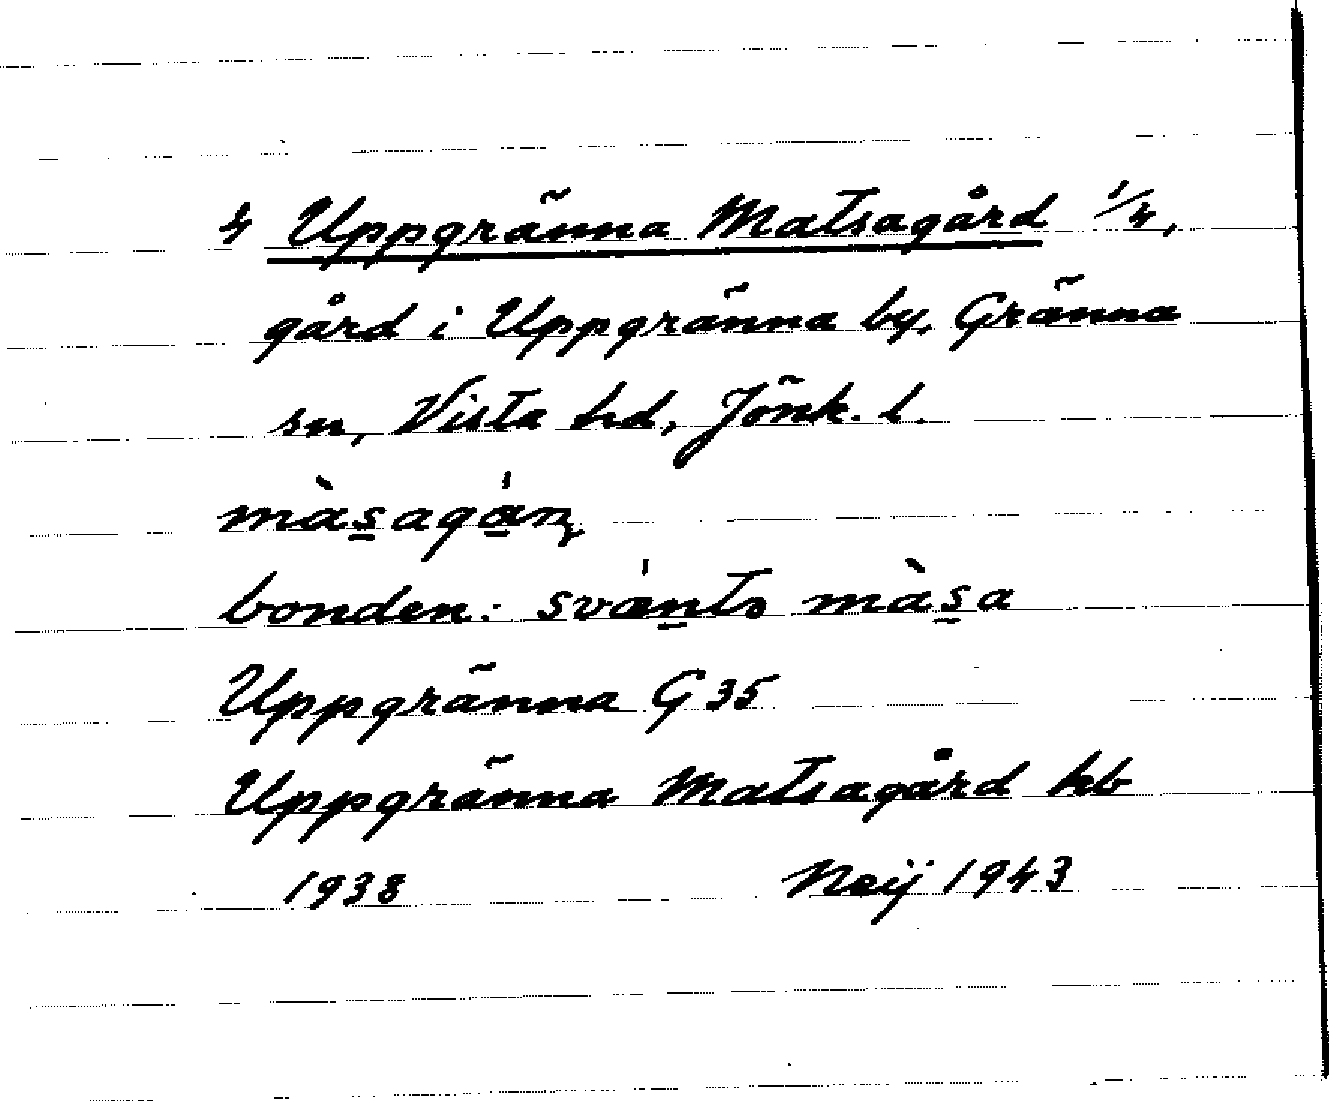 4 Uppgränna Matsagård 1/4,
gård i Uppgränna by, Gränna
sn, Vista hd, Jönk. l.
màs̲agá̲ɳ
bonden: svæ̀n̲ts màs̲a
Uppgränna G 35
Uppgränna Matsagård kb
1938 Neij 1943